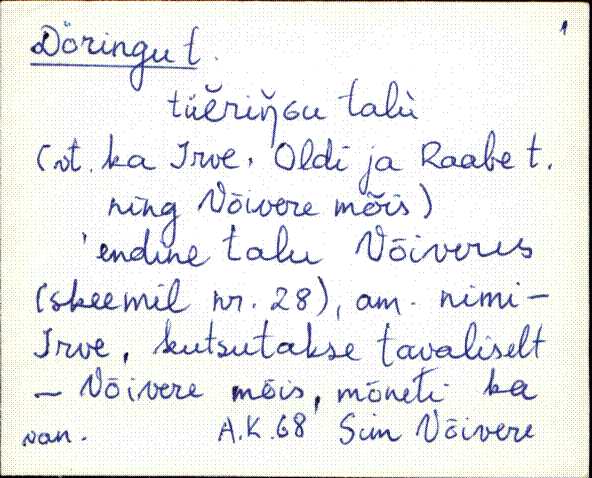 1
Döringu t.
tüĕriŋ̆ɢu talù
(vt. ka Irve, Oldi ja Raabe t.
ning Võivere mõis)
'endine talu Võiveres
(skeemil nr. 28), am. nimi –
Irve, kutsutakse tavaliselt
– Võivere mõis, mõneti ka
van. A.K.68 Sim Võivere